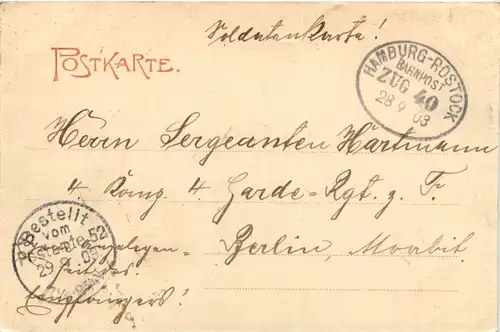 Soldatenkarte!
POSTKARTE.
HAMBURG-ROSTOCK
BAHNPOST
ZUG 40
28 9 03
Herrn Sergeanten Hartmann
4. Komp. 4. Garde-Rgt. z. F.
Berlin, Moabit.
Bestellt
vom
Postamte 52
29. 9. 03
Eigene Angelegen-
heit des
Empfängers!